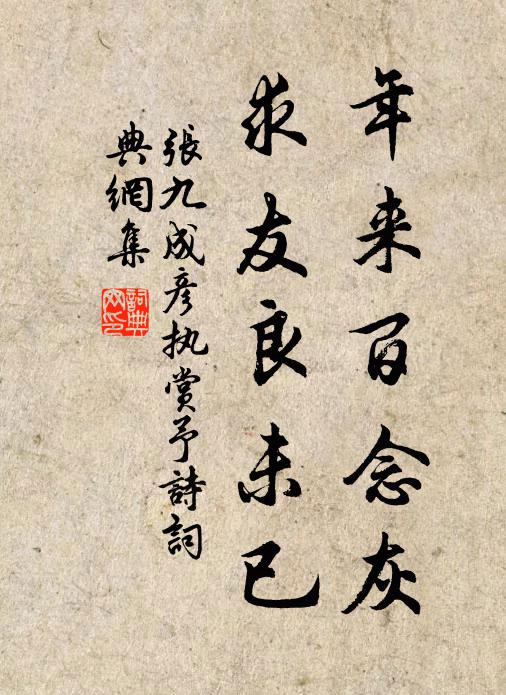 年来百念灰
求友良未已
張九成彦执賞予詩詞
典網集
詞典
网印